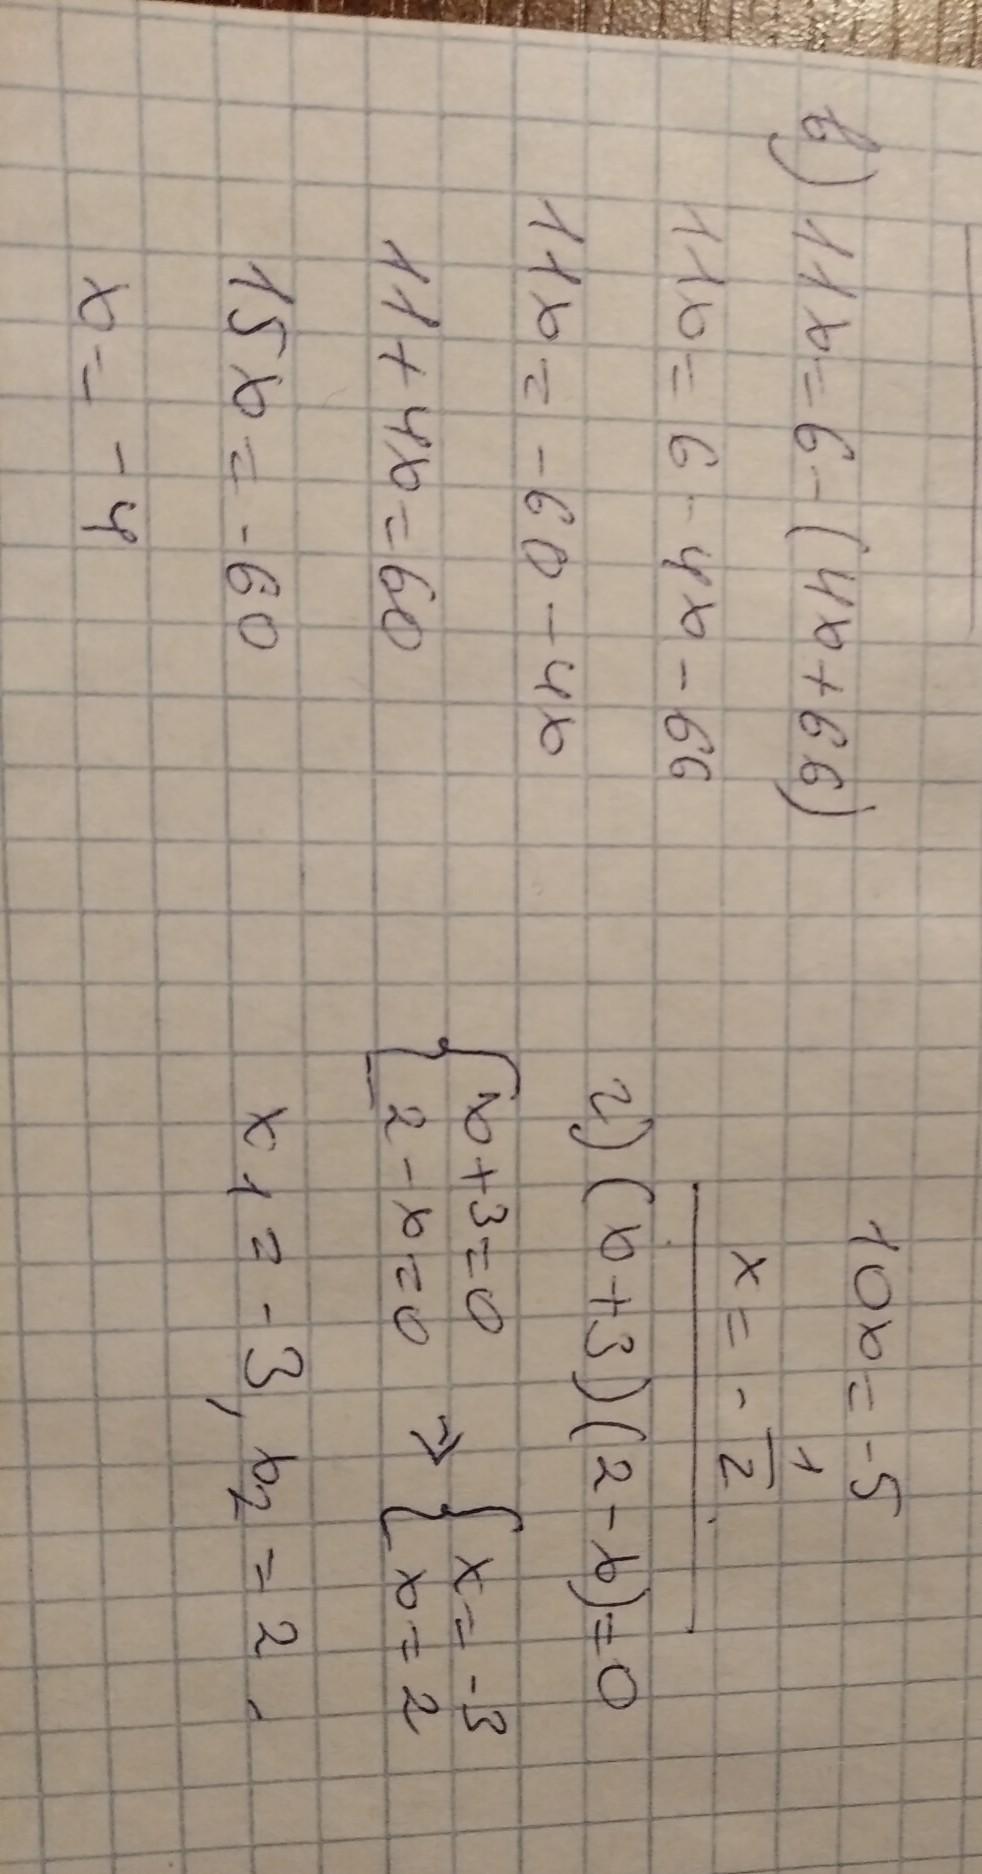 в) 11x=6-(4x+66)
11x=6-4x-66
11x=-60-4x
11+4x=60
15x=-60
x=-4
10x=-5
x=-1/2
г) (x+3)(2-x)=0
{x+3=0
2-x=0 => {x=-3
x=2
x1=-3, x2=2.